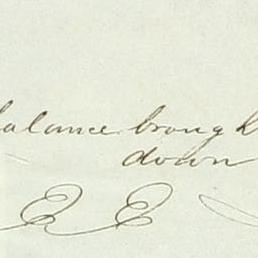 balance brough
down
E E